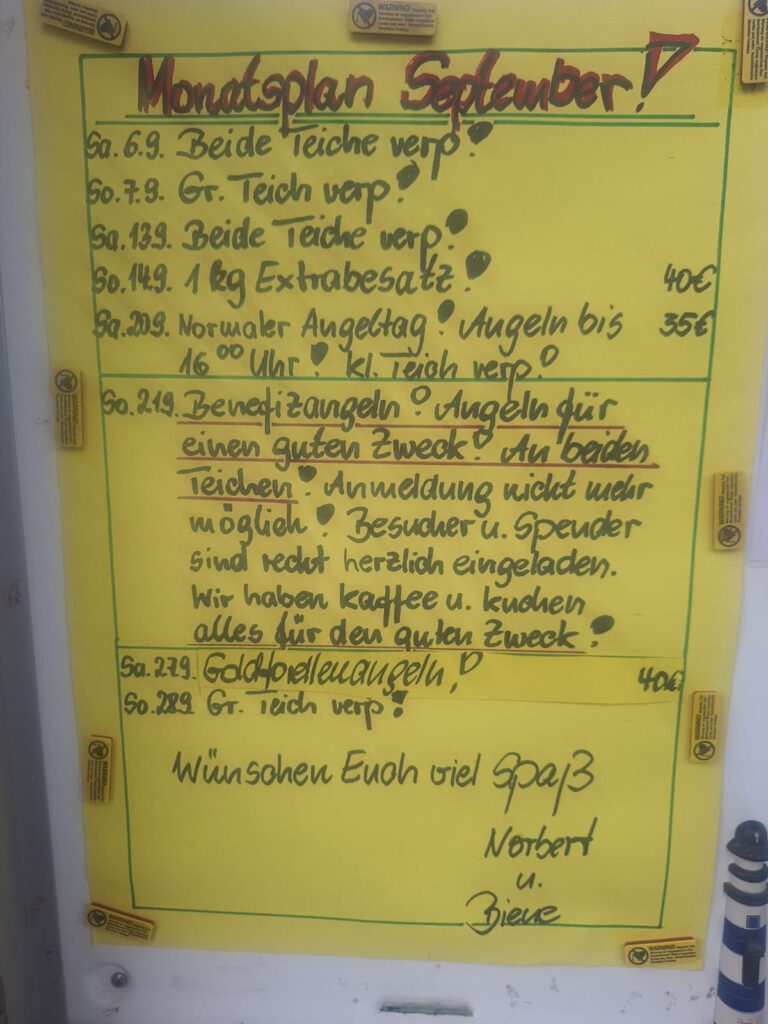 Monatsplan September!
Sa. 6.9. Beide Teiche verp!
So. 7.9. Gr. Teich verp!
Sa. 13.9. Beide Teiche verp!
So. 14.9. 1 kg Extrabesatz! 40€
Sa. 20.9. Normaler Angeltag! Angeln bis 35€
16⁰⁰ Uhr! kl. Teich verp!
So. 21.9. Benefizangeln! Angeln für
einen guten Zweck! An beiden
Teichen! Anmeldung nicht mehr
möglich! Besucher u. Spender
sind recht herzlich eingeladen.
Wir haben kaffee u. kuchen
alles für den guten Zweck!
Sa. 27.9. Goldforellenangeln! 40€
So. 28.9. Gr. Teich verp!
Wünschen Euch viel Spaß
Norbert
u.
Biene
WARNING!